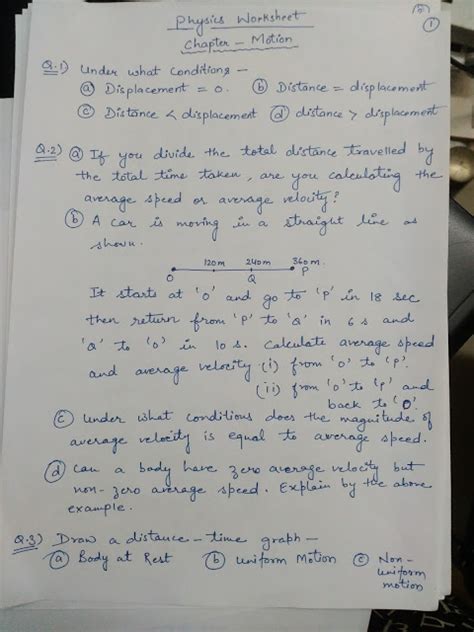 Physics Worksheet
①
Chapter - Motion
Q.1) Under what Conditions -
ⓐ Displacement = 0. ⓑ Distance = displacement
ⓒ Distance < displacement ⓓ distance > displacement
Q.2) ⓐ If you divide the total distance travelled by
the total time taken, are you calculating the
average speed or average velocity?
ⓑ A car is moving in a straight line as
shown.
120m 240m 360m
O Q P
It starts at 'O' and go to 'P' in 18 sec
then return from 'P' to 'Q' in 6 s and
'Q' to 'O' in 10 s. Calculate average speed
and average velocity (i) from 'O' to 'P'.
(ii) from 'O' to 'P' and
back to 'O'.
ⓒ Under what conditions does the magnitude of
average velocity is equal to average speed.
ⓓ Can a body have zero average velocity but
non-zero average speed. Explain by the above
example.
Q.3) Draw a distance-time graph -
ⓐ Body at Rest ⓑ Uniform Motion ⓒ Non-
uniform
motion